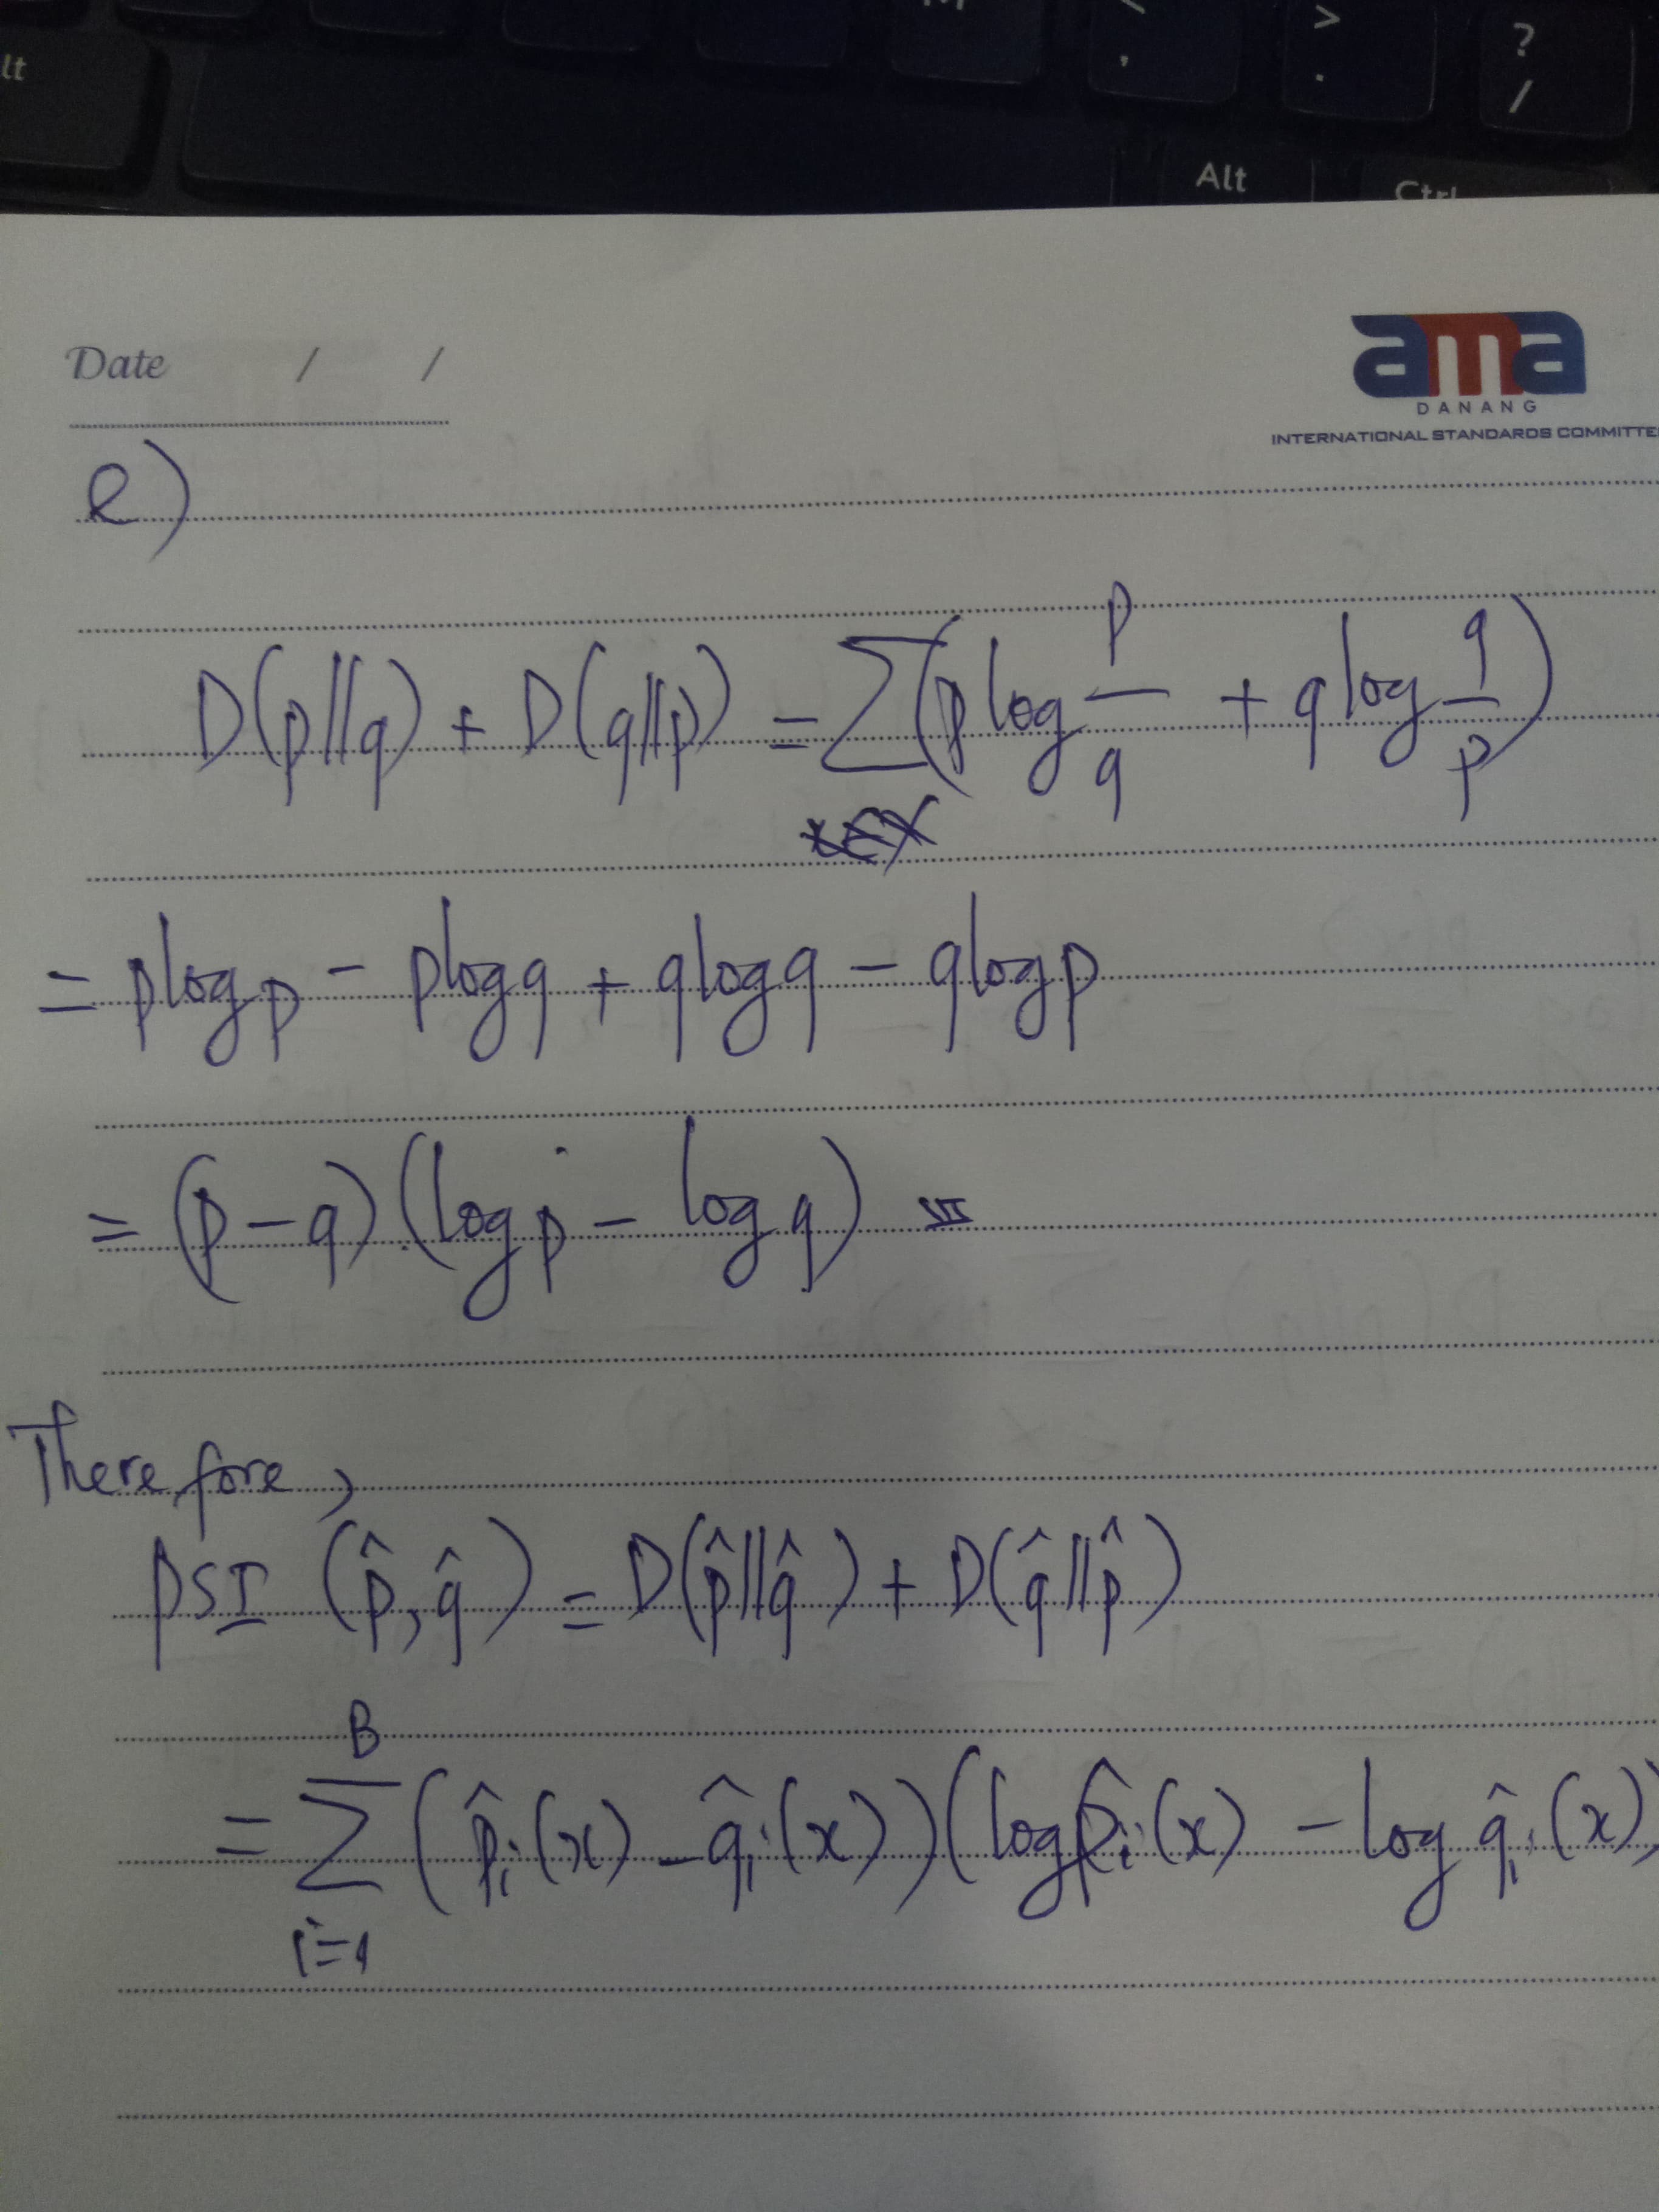 lt
M
,
>
.
?
/
Alt
Ctrl
Date / /
ama
DANANG
INTERNATIONAL STANDARDS COMMITTE
e)
D(p||q) + D(q||p) = ∑ (p log p/q + q log q/p)
x∈X
= p log p - p log q + q log q - q log p
= (p - q) (log p - log q)
Therefore,
PSI (p̂, q̂) = D(p̂||q̂) + D(q̂||p̂)
B
= ∑ (p̂i(x) - q̂i(x)) (log p̂i(x) - log q̂i(x))
i=1